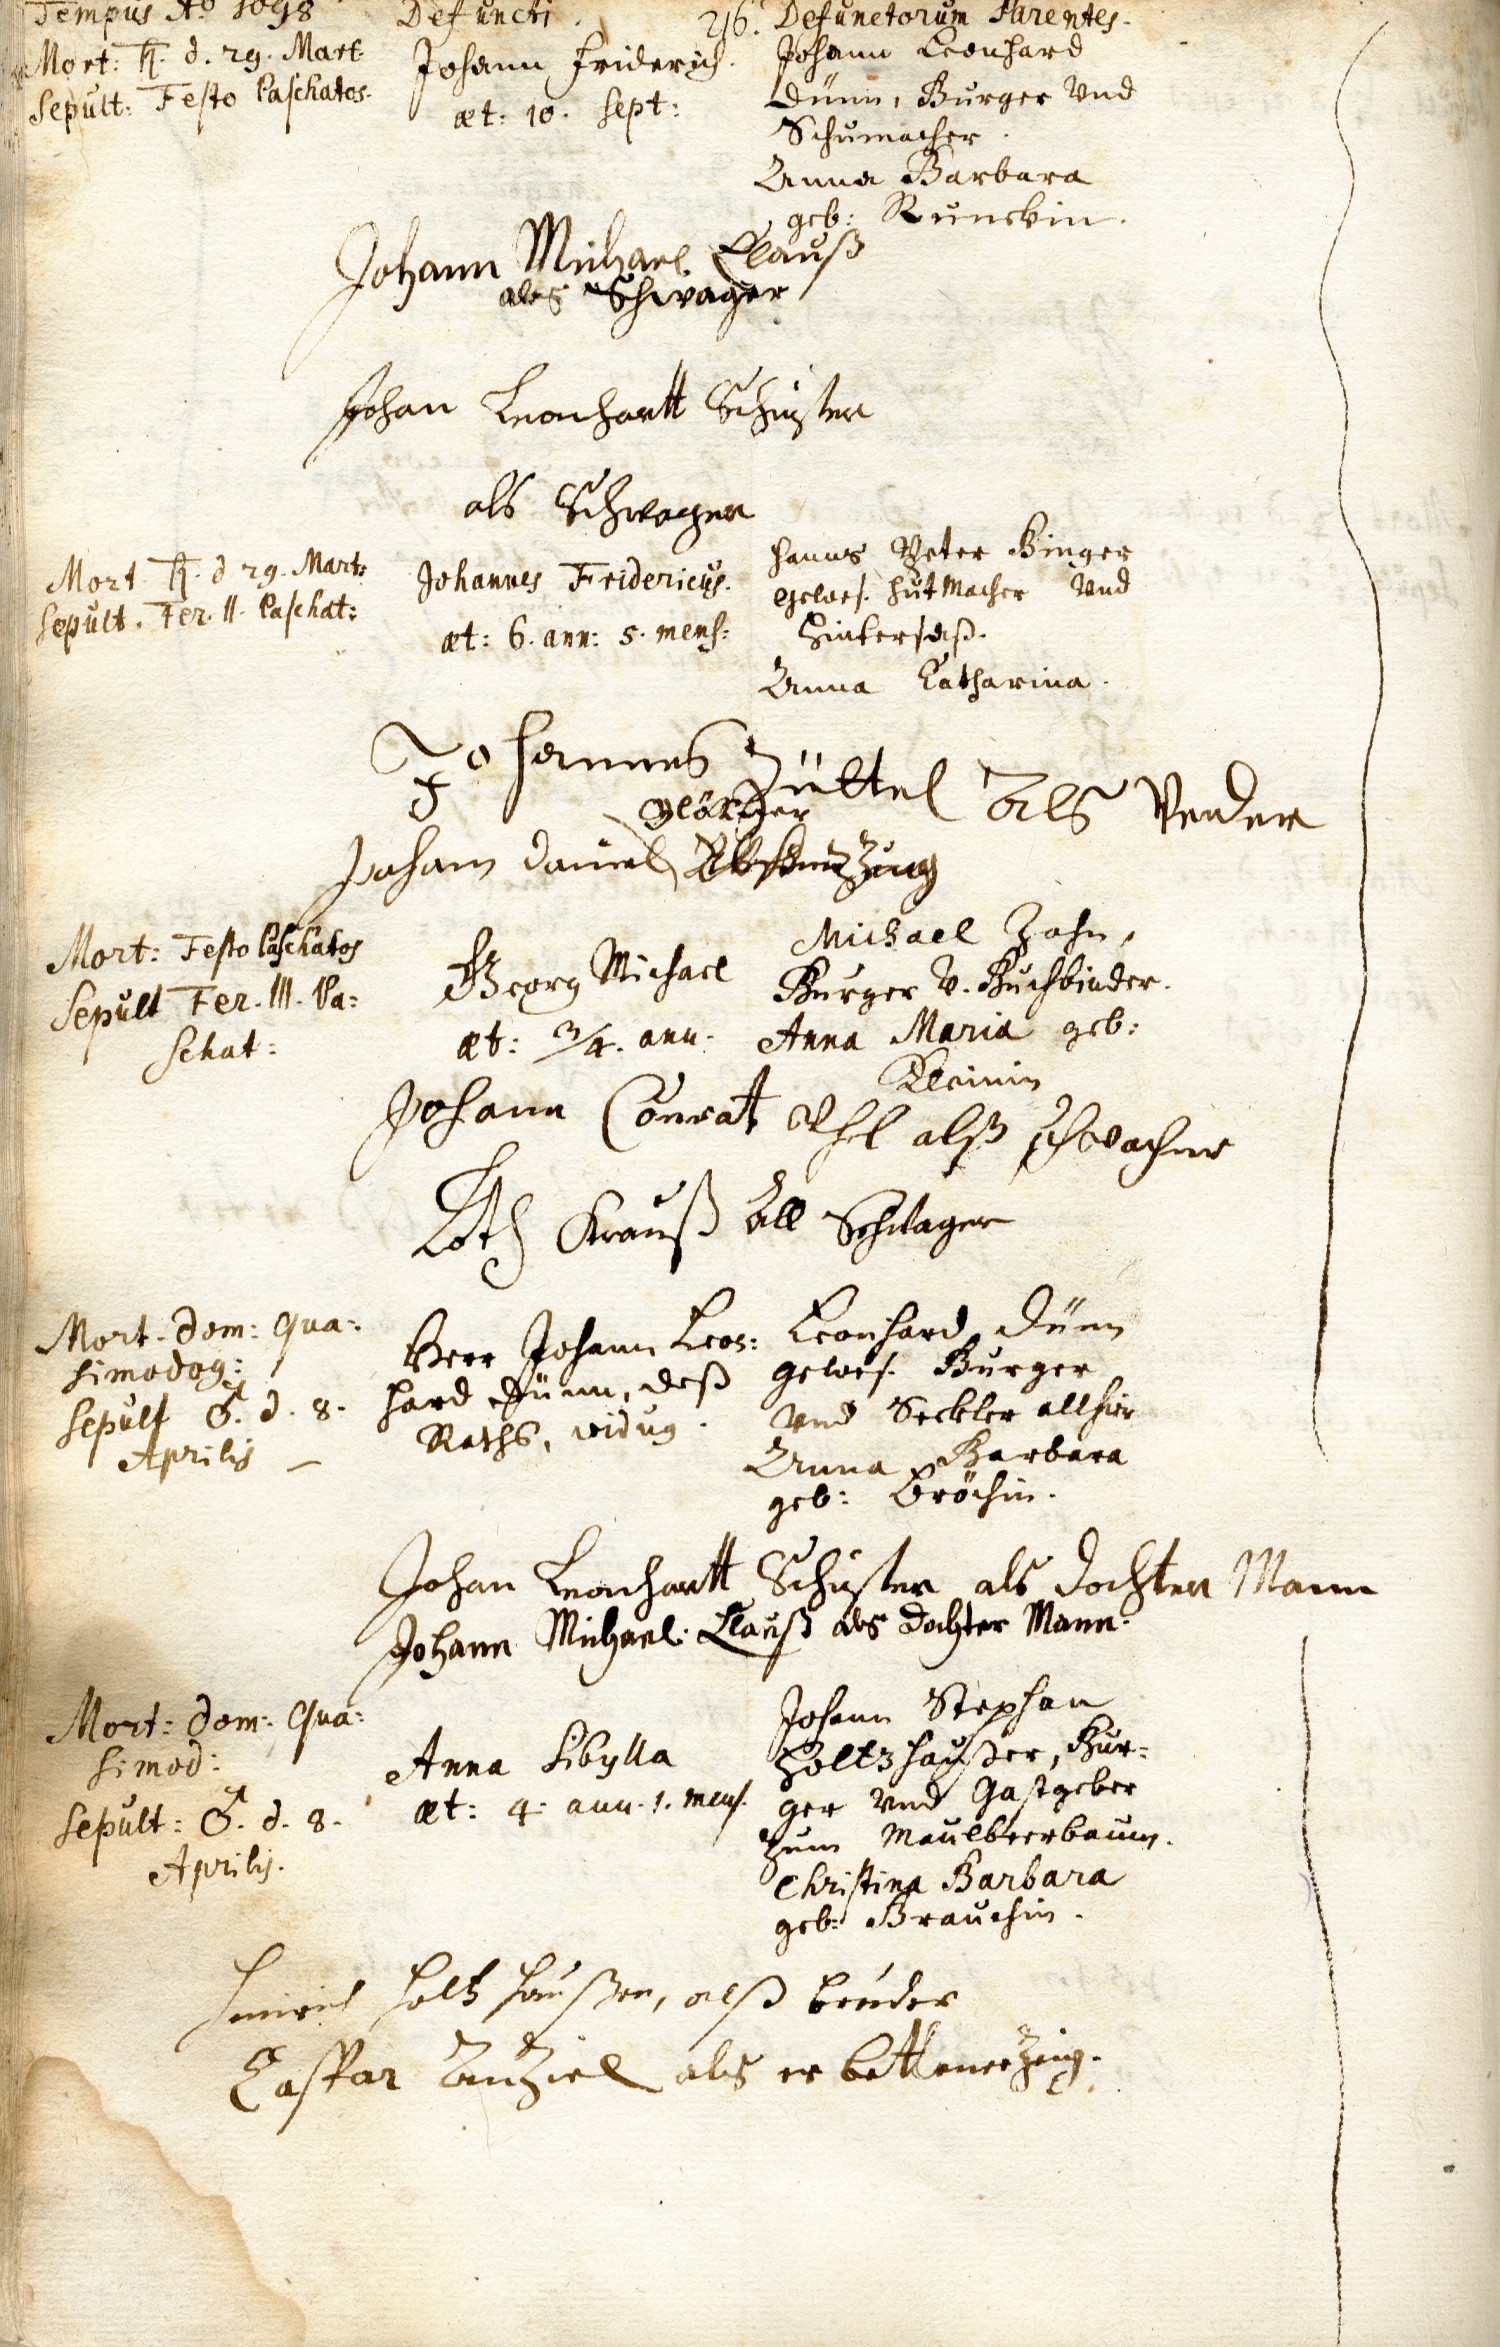 Tempus Aō 1698 Defuncti. 216. Defunctorum Parentes.
Mort: ♄. d. 29. Mart.
Sepult: Festo Paschatos.
Johann Friderich.
æt: 10. Sept:
Johann Leonhard
Dünn, Burger Vnd
Schumacher.
Anna Barbara
geb: Runckin.
Johann Michael Clauß
als Schwager
Johan Leonhartt Schuster
als Schwager
Mort. ♄. d 29. Mart:
Sepult. Fer. II. Paschat:
Johannes Fridericus.
æt: 6. ann: 5. mens:
Hanns Peter Binger
gewes. Hutmacher Vnd
Hintersaß.
Anna Catharina.
Johannes Züttel Als Veder
Glöckner
Johann Daniel
Mort: Festo Paschatos
Sepult Fer. III. Pa:
schat:
Georg Michael
æt: 3/4. ann.
Michael Zahn,
Burger V. Buchbinder.
Anna Maria geb:
Kleinin
Johann Conrat Ohl alß schwacher
Loth Krauß All Schwager
Mort. Dom: Qua:
simodog:
Sepult ♂. d. 8.
Aprilis
Herr Johann Leon:
hard Dünn, deß
Raths, vidug.
Leonhard Dünn
gewes. Burger
Vnd Seckler allhier
Anna Barbara
geb: Bröchin.
Johan Leonhartt Schuster als dochter Mann
Johann Michael Clauß als Dochter Mann.
Mort: Dom: Qua:
simod:
Sepult: ♂. d. 8.
Aprilis.
Anna Sibylla
æt: 4. ann. 1. mens.
Johann Stephan
Holtzhaußer, Bur:
ger Vnd Gastgeber
Zum Maulbeerbaum.
Christina Barbara
geb: Brauchin.
Henrich Holtzhaußer, alß bruder
Caspar als erbettener Zeug.